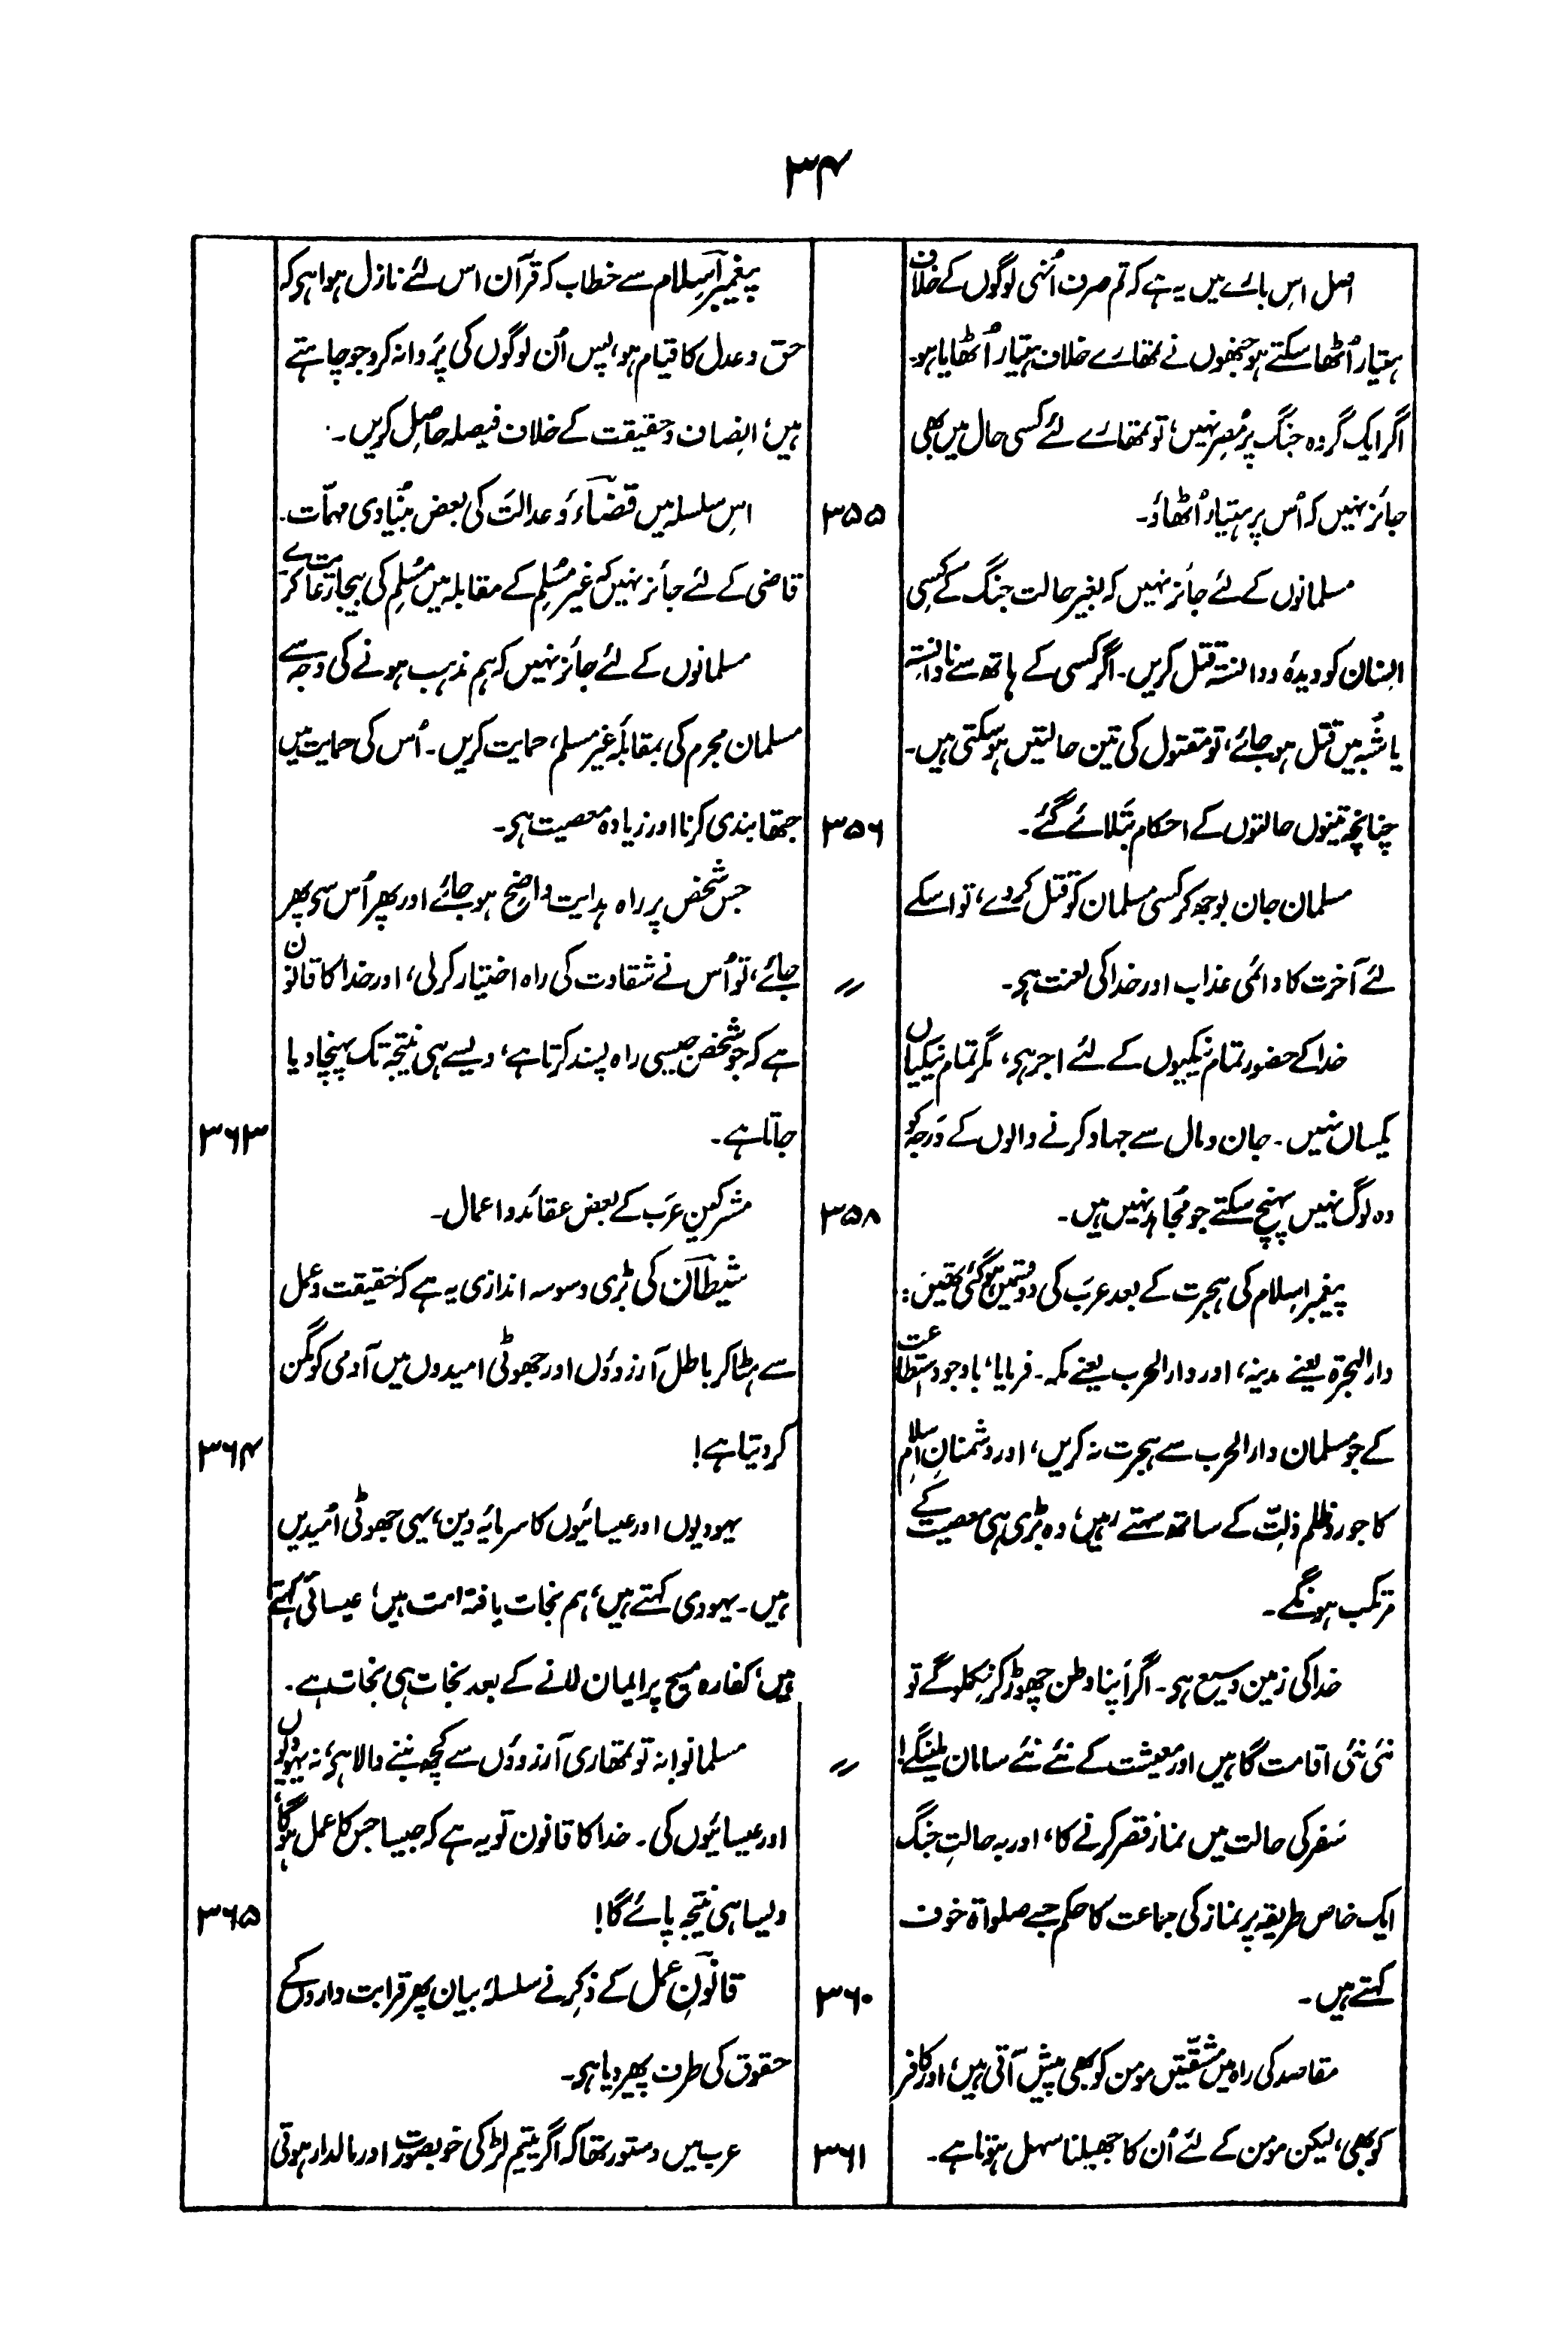 ۳۴
اصل اس بارے میں یہ ہے کہ تم صرف اُنہی لوگوں کے خلاف
ہتیار اُٹھا سکتے ہو جنھوں نے تمھارے خلاف ہتیار اُٹھایا ہو۔
اگر ایک گروہ جنگ پر مُصِر نہیں، تو تمھارے لئے کسی حال میں بھی
جائز نہیں کہ اُس پر ہتیار اُٹھاؤ۔ ۳۵۵
مسلمانوں کے لئے جائز نہیں کہ بغیر حالت جنگ کے کسی
انسان کو دیدہ و دانستہ قتل کریں۔ اگر کسی کے ہاتھ سے نادانستہ
یا شُبہ میں قتل ہو جائے، تو مقتول کی تین حالتیں ہو سکتی ہیں۔
چنانچہ تینوں حالتوں کے احکام بَتلائے گئے۔ ۳۵۶
مسلمان جان بوجھ کر کسی مسلمان کو قتل کر دے، تو اسکے
لئے آخرت کا دائمی عذاب اور خدا کی لعنت ہی۔ 〃
خدا کے حضور تمام نیکیوں کے لئے اجر ہی، مگر تمام نیکیاں
یکساں نہیں۔ جان و مال سے جہاد کرنے والوں کے دَرجہ کو
وہ لوگ نہیں پہنچ سکتے جو مُجاہد نہیں ہیں۔ ۳۵۸
پیغمبر اسلام کی ہجرت کے بعد عرَب کی دو قسمیں ہو گئی تھیں:
دار الہجرۃ یعنے مدینہ، اور دار الحرب یعنے مکہ۔ فرمایا، باوجود استطاعت
کے جو مسلمان دار الحرب سے ہجرت نہ کریں، اور دشمنانِ اسلام
کا جور و ظلم ذلت کے ساتھ سہتے رہیں، وہ بڑی ہی معصیت کے
مرتکب ہونگے۔
خدا کی زمین وسیع ہی۔ اگر اپنا وطن چھوڑ کر نکلو گے تو
نئی نئی اقامت گاہیں اور معیشت کے نئے نئے سامان ملینگے! 〃
سَفر کی حالت میں نماز قصر کرنے کا، اور بہ حالتِ جنگ
ایک خاص طریقہ پر نماز کی جماعت کا حکم جسے صلواۃ خوف
کہتے ہیں۔ ۳۶۰
مقاصد کی راہ میں مشقّتیں مومن کو بھی پیش آتی ہیں، اور کافر
کو بھی، لیکن مومن کے لئے اُن کا جھیلنا سہل ہوتا ہے۔ ۳۶۱
پیغمبر اسلام سے خطاب کہ قرآن اس لئے نازل ہوا ہی کہ
حق و عدل کا قیام ہو، پس اُن لوگوں کی پَروا نہ کرو جو چاہتے
ہیں، انصاف و حقیقت کے خلاف فیصلہ حاصِل کریں۔
اسِ سلسلہ میں قضاء و عدالت کی بعض بُنیادی مہمّات۔
قاضی کے لئے جائز نہیں کہ غیر مُسلِم کے مقابلہ میں مُسلِم کی بیجا رعایت کرے
مسلمانوں کے لئے جائز نہیں کہ ہم مذہب ہونے کی وجہ سے
مسلمان مجرم کی بمقابلۂ غیر مسلم، حمایت کریں۔ اُس کی حمایت میں
جتھا بندی کرنا اور زیادہ معصیت ہی۔
جس شخص پر راہ ہدایت واضح ہو جائے اور پھر اُس سی پھر
جائے، تو اُس نے شقاوت کی راہ اختیار کر لی، اور خدا کا قانون
ہے کہ جو شخص جیسی راہ پسند کرتا ہے، ویسے ہی نتیجہ تک پہنچا دیا
جاتا ہے۔ ۳۶۳
مشرکین عرَب کے بعض عقائد و اعمال۔
شیطان کی بڑی وسوسہ اندازی یہ ہے کہ حقیقت و عمل
سے ہٹا کر باطل آرزوؤں اور جھوٹی امیدوں میں آدمی کو مگن
کر دیتا ہے! ۳۶۴
یہودیوں اور عیسائیوں کا سرمایۂ دین، یہی جھوٹی اُمیدیں
ہیں۔ یہودی کہتے ہیں، ہم نجات یافتہ امت ہیں، عیسائی کہتے
ہیں، کفارہ مسیح پر ایمان لانے کے بعد نجات ہی نجات ہے۔
مسلمانو! نہ تو تمھاری آرزوؤں سے کچھ بننے والا ہی، نہ یہودیوں
اور عیسائیوں کی۔ خدا کا قانون تو یہ ہے کہ جیسا جس کا عمل ہوگا،
ویسا ہی نتیجہ پائے گا! ۳۶۵
قانونِ عمل کے ذِکر نے سلسلۂ بیان پھر قرابت داروں کے
حقوق کی طرف پھیر دیا ہی۔
عرب میں دستور تھا کہ اگر یتیم لڑکی خوبصورت اور مالدار ہوتی